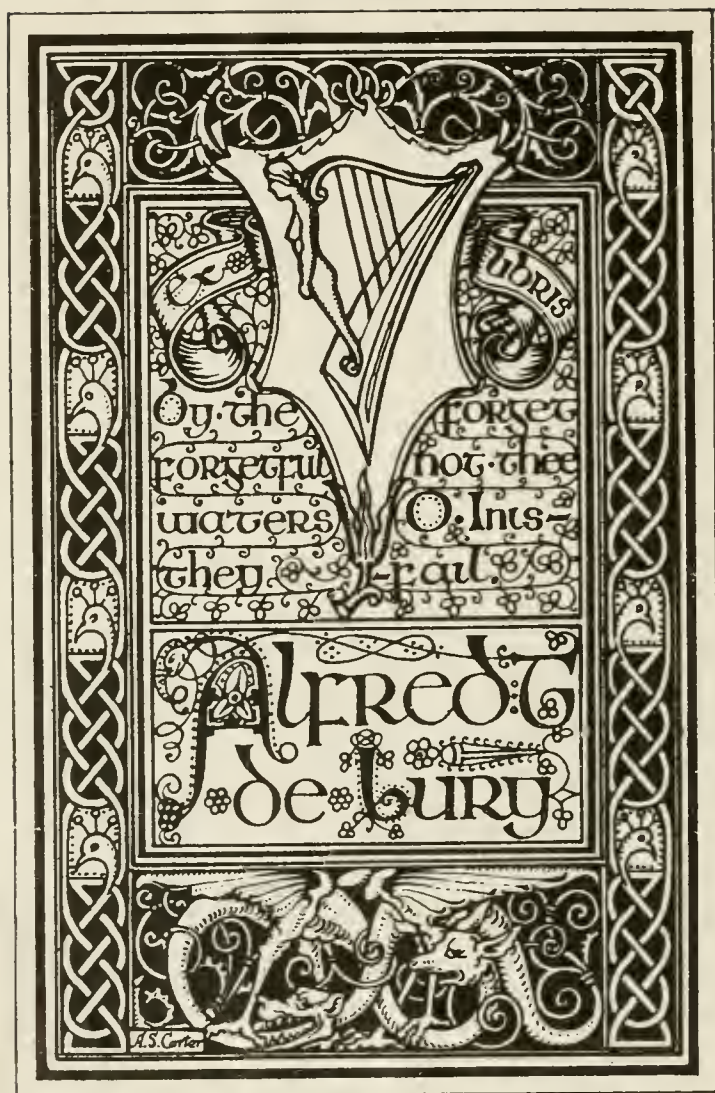 ex
LIBRIS
By·the
forgetful
waters
they.
forget
not·thee
O·Inis-
-fail.
Alfred:T
de Lury
A.S.Carter